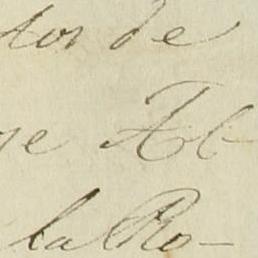 tor de
ne Al-
la Ro-